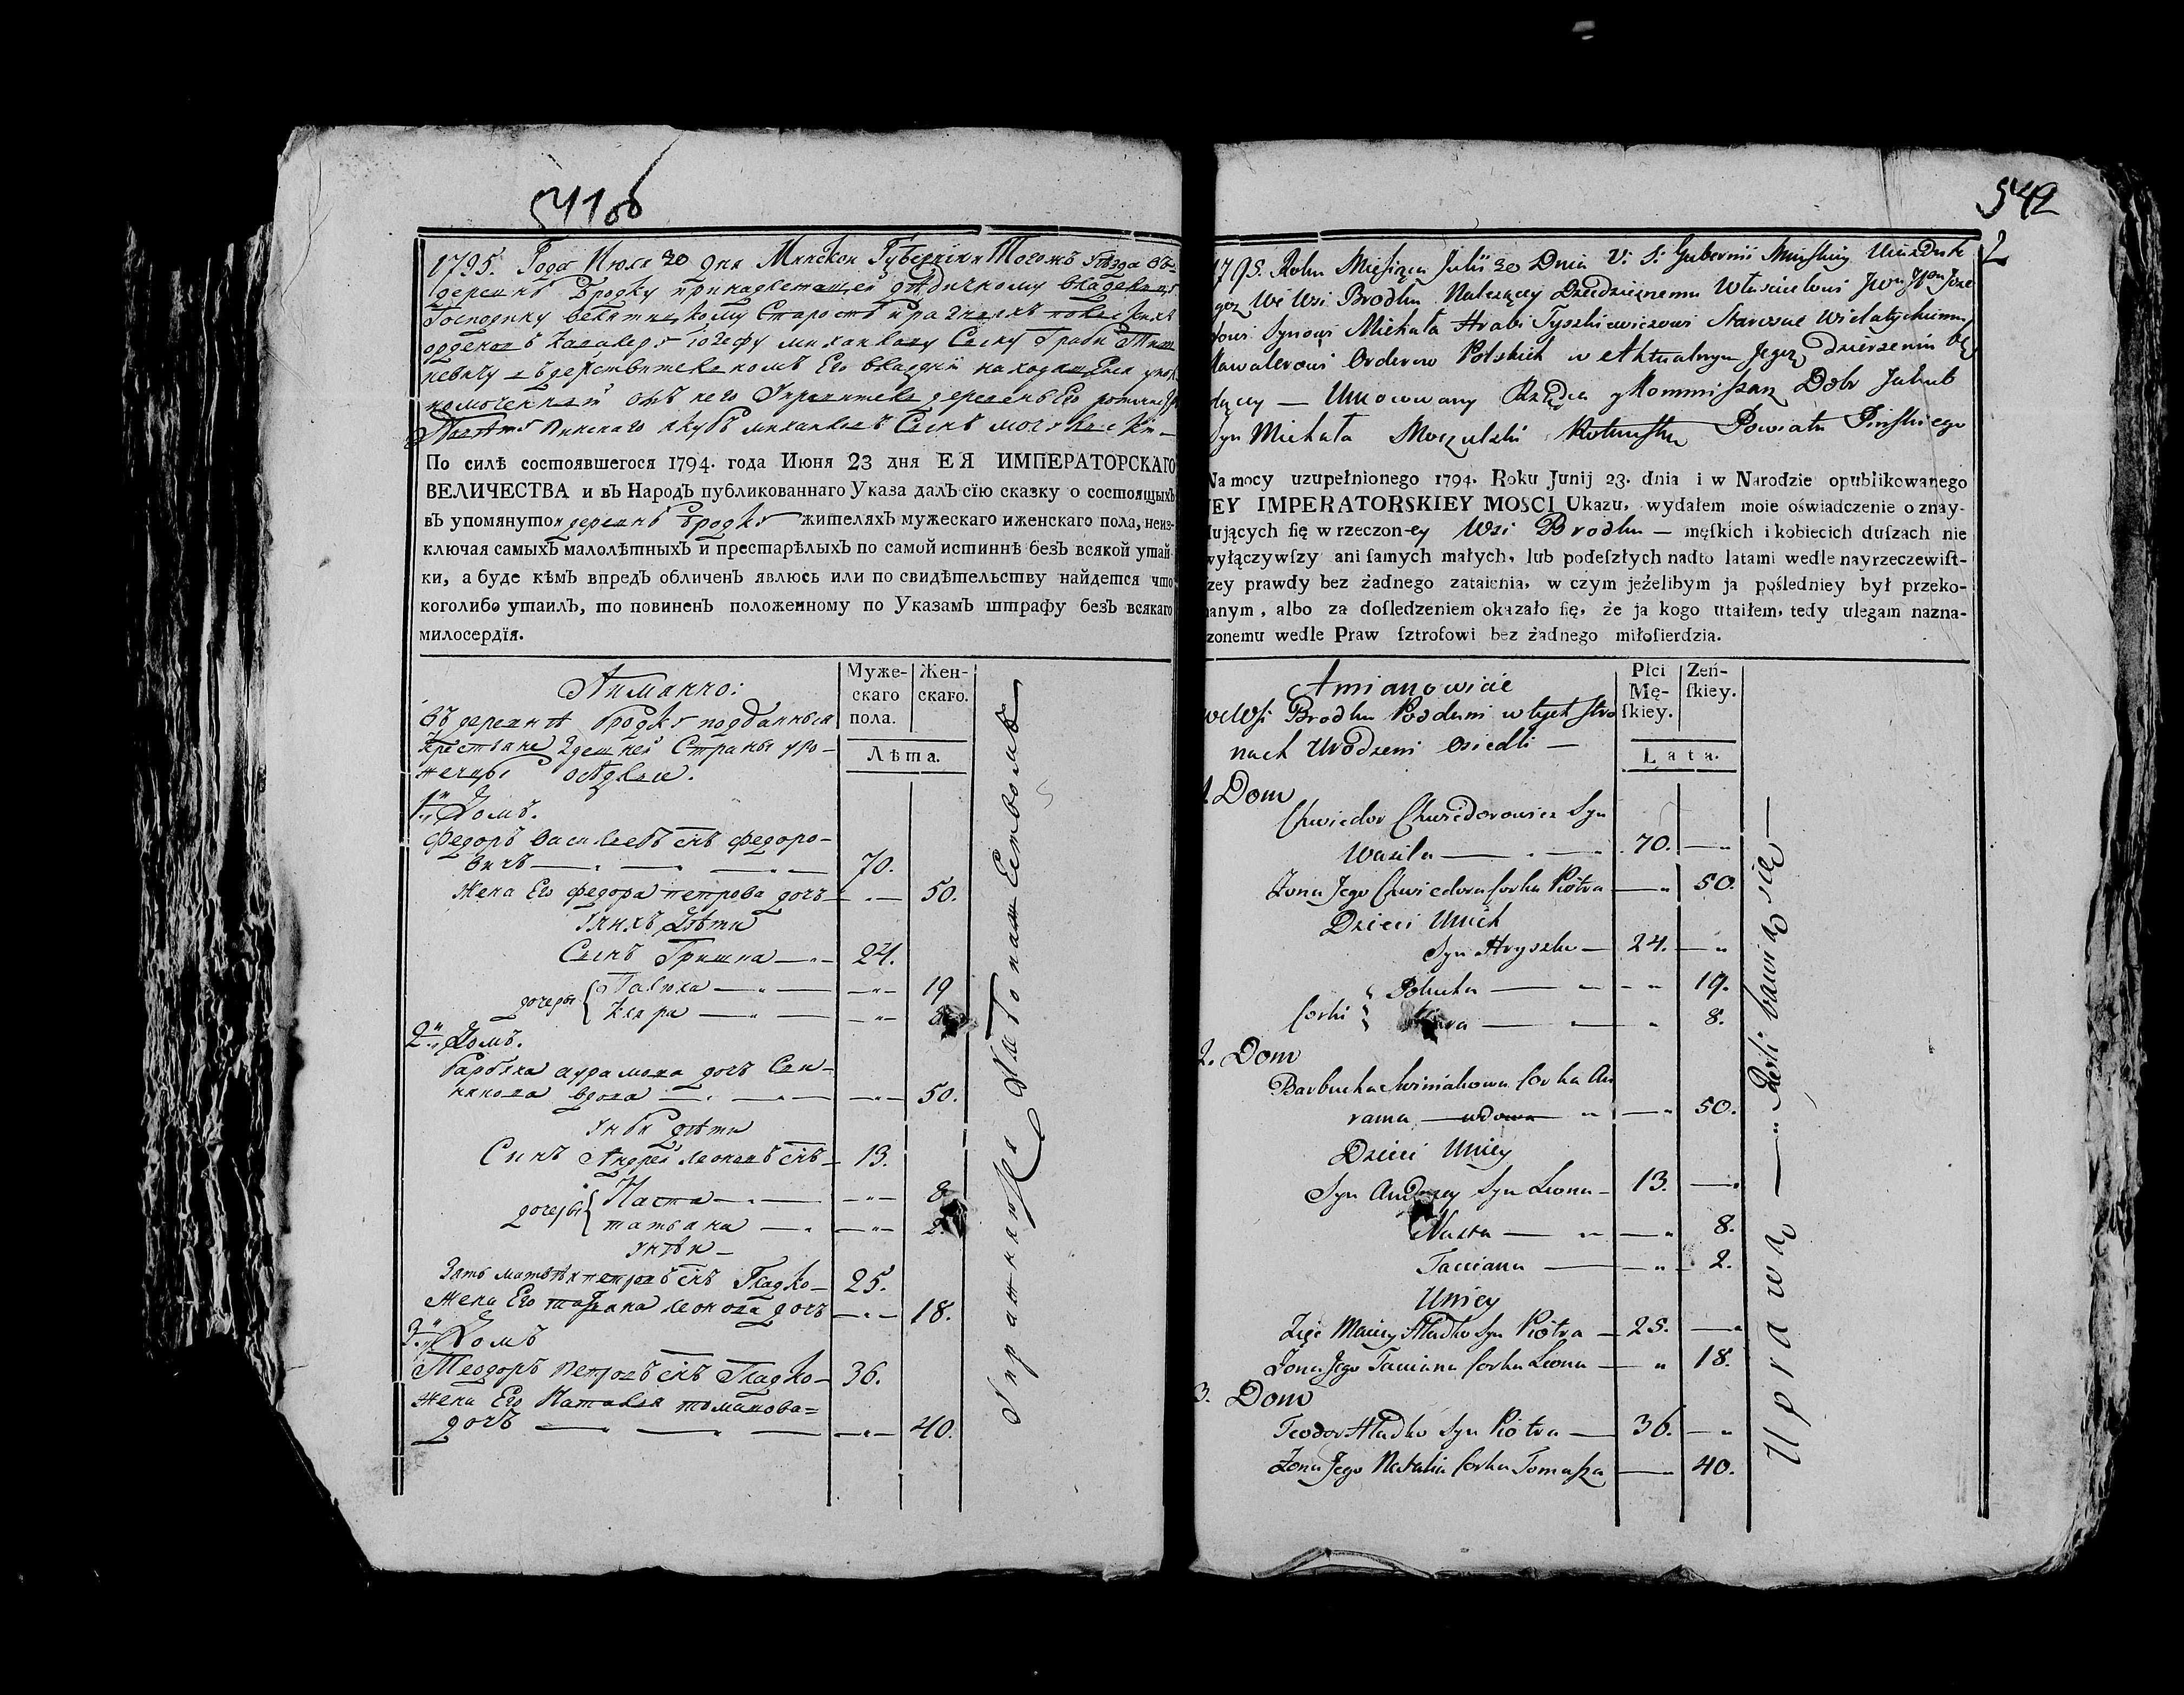 541об
1795. Года Июля 20 дня Минской Губерніи Тогожъ Уѣзда Въ
деревнѣ Бродку принадлежащей дѣдичному владельцу
Господину Старостѣ Кавалеру
орденовъ Кавалеру Іозефу михайлову Сыну Графу Тиш
кевичу въ действительномъ Его владѣніи находящейся упол
номоченный отъ него Управитель деревень Его
Пинскаго Якубъ михайловъ Сынъ
По силѣ состоявшегося 1794. года Июня 23 дня ЕЯ ИМПЕРАТОРСКАГО
ВЕЛИЧЕСТВА и въ Народъ публикованнаго Указа далъ сїю сказку о состоящыхъ
въ упомянутой деревнѣ Бродку жителяхъ мужескаго иженскаго пола, неиз-
ключая самыхъ малолѣтныхъ и престарѣлыхъ по самой истиннѣ безъ всякой утай
ки, а буде кѣмъ впредъ обличенъ явлюсь или по свидѣтельству найдется что
коголибо утаилъ, то повиненъ положенному по Указамъ штрафу безъ всякаго
милосердїя.
Аимянно:
Муже-скаго пола.
Жен-скаго.
Лѣта.
Въ деревнѣ бродку подданныя
крестьяне здешней Страны уро-
женцы оседлые.
1й Домъ.
Федоръ Васильевъ снъ Федоро-
вичъ 70.
Жена Его федора петрова дочь 50.
У нихъ Дѣти
Сынъ Гришка 24.
дочеры Палюха 19
Кляра 8
2й Домъ.
барбяха аврамова дочъ Сви-
някова вдова 50.
У ней дѣти
Сынъ Андрей леоновъ снъ 13.
дочеры Наста 8
татьяна 2.
У ней
Зять матвѣй петровъ снъ Гладко 25.
Жена Его татяна леонова дочъ 18.
3й Домъ
Теодоръ петровъ снъ Гладко 36.
Жена Его Наталя томашова
дочъ 40.
542
2
1795. Roku Miesiąca Julii 20 Dnia V: S: Gubernii Minskiey Uiazdu te
goz We Wsi Brodku Nalezącey Dziedzicznemu Właścicielowi Joze
fowi Synowi Michała Hrabi Tyszkiewiczowi Staroscie Wielatyckiemu
Kawalerowi Orderow Polskich w Aktualnym Jegoz Dzierzeniu bę
dącey — Umocowany Rządca y Kommissarz Dobr Jakub
Syn Michała Moczulski Powiatu Pinskiego
Na mocy uzupełnionego 1794. Roku Junij 23. dnia i w Narodzie opublikowanego
JEY IMPERATORSKIEY MOSCI Ukazu, wydałem moie oświadczenie o znay-
dujących się w rzeczon-ey Wsi Brodku — męskich i kobiecich duszach nie
wyłączywszy ani samych małych, lub podeszłych nadto latami wedle nayrzeczewist-
szey prawdy bez żadnego zataienia, w czym jeżelibym ja pośledniey był przeko-
nanym, albo za dosledzeniem okazało się, że ja kogo utaiłem, tedy ulegam nazna-
czonemu wedle Praw sztrofowi bez żadnego miłosierdzia.
Amianowicie
Płci Mę-skiey.
Zeń-skiey.
Lata.
We Wsi Brodku Poddani w tych stro
nach Urodzeni Osiedli —
1. Dom
Chwiedor Chwiedorowicz Syn
Wasila 70.
Zona Jego Chwiedora Corka Piotra 50.
Dzieci Unich
Syn Hryszko 24.
Corki Polucha 19.
Klara 8.
2. Dom
Barbucha Swiniakowa Corka Au
rama wdowa 50.
Dzieci Uniey
Syn Andrzey Syn Leona 13.
Nasta 8.
Tacianna 2.
Uniey
Zięc Maciey Hładko Syn Piotra 25.
Zona Jego Taciana Corka Leona 18.
3. Dom
Teodor Hładko Syn Piotra 36.
Zona Jego Natalia Corka Tomasza 40.
Uprawą Roli bawią się